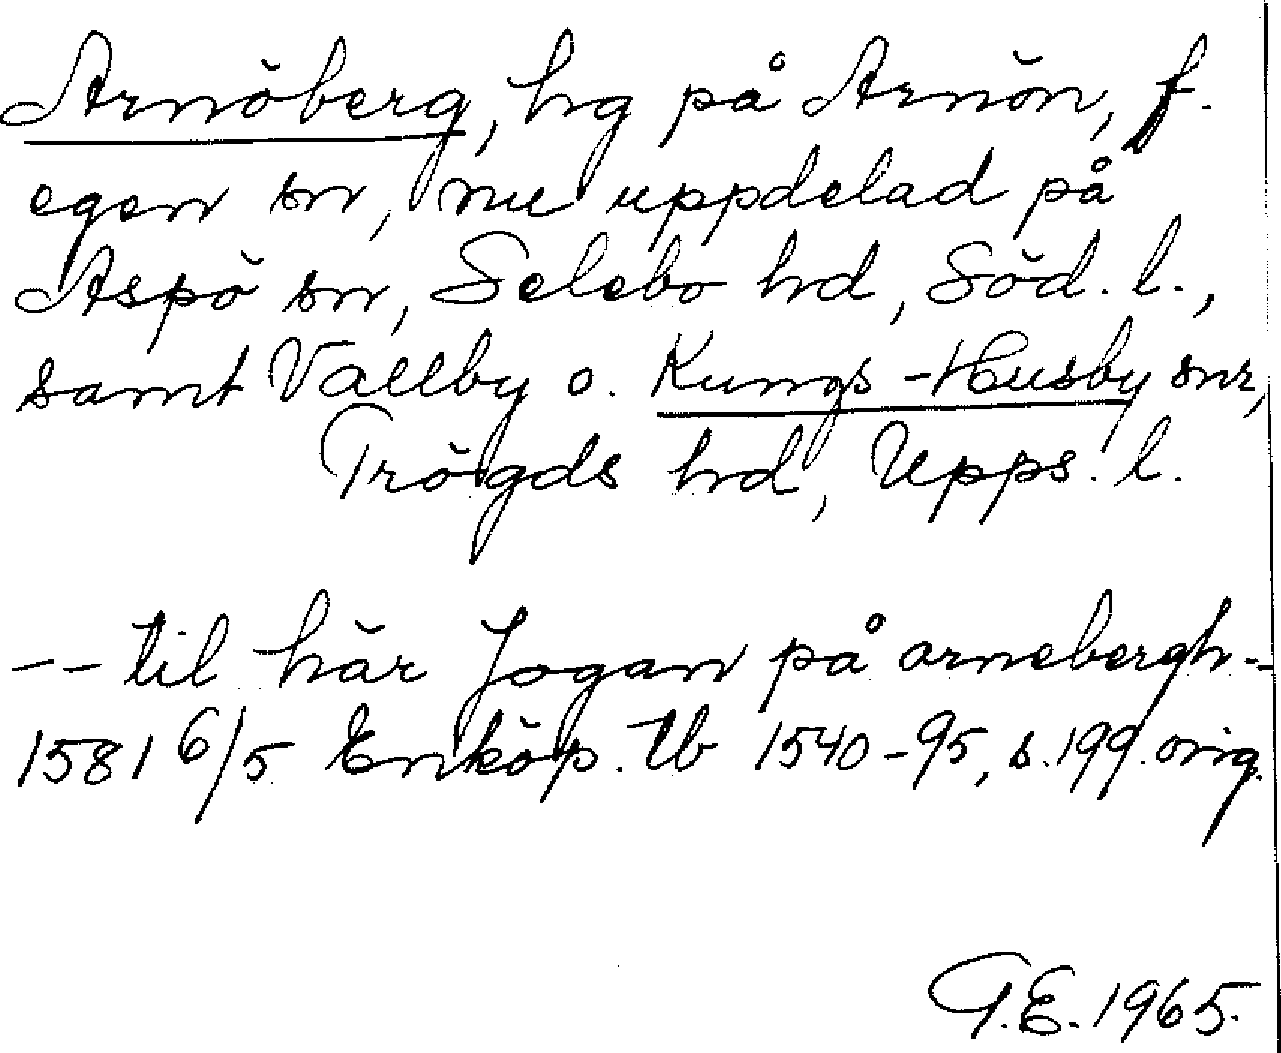 Arnöberg, hg på Arnön, f.
egen sn, nu uppdelad på
Aspö sn, Selebo hd, Söd. l.,
samt Vallby o. Kungs-Husby snr,
Trögds hd, Upps. l.
-- til här Jogan på arnebergh --
1581 6/5 Enköp. tb 1540-95, s. 199. orig.
G.E. 1965.